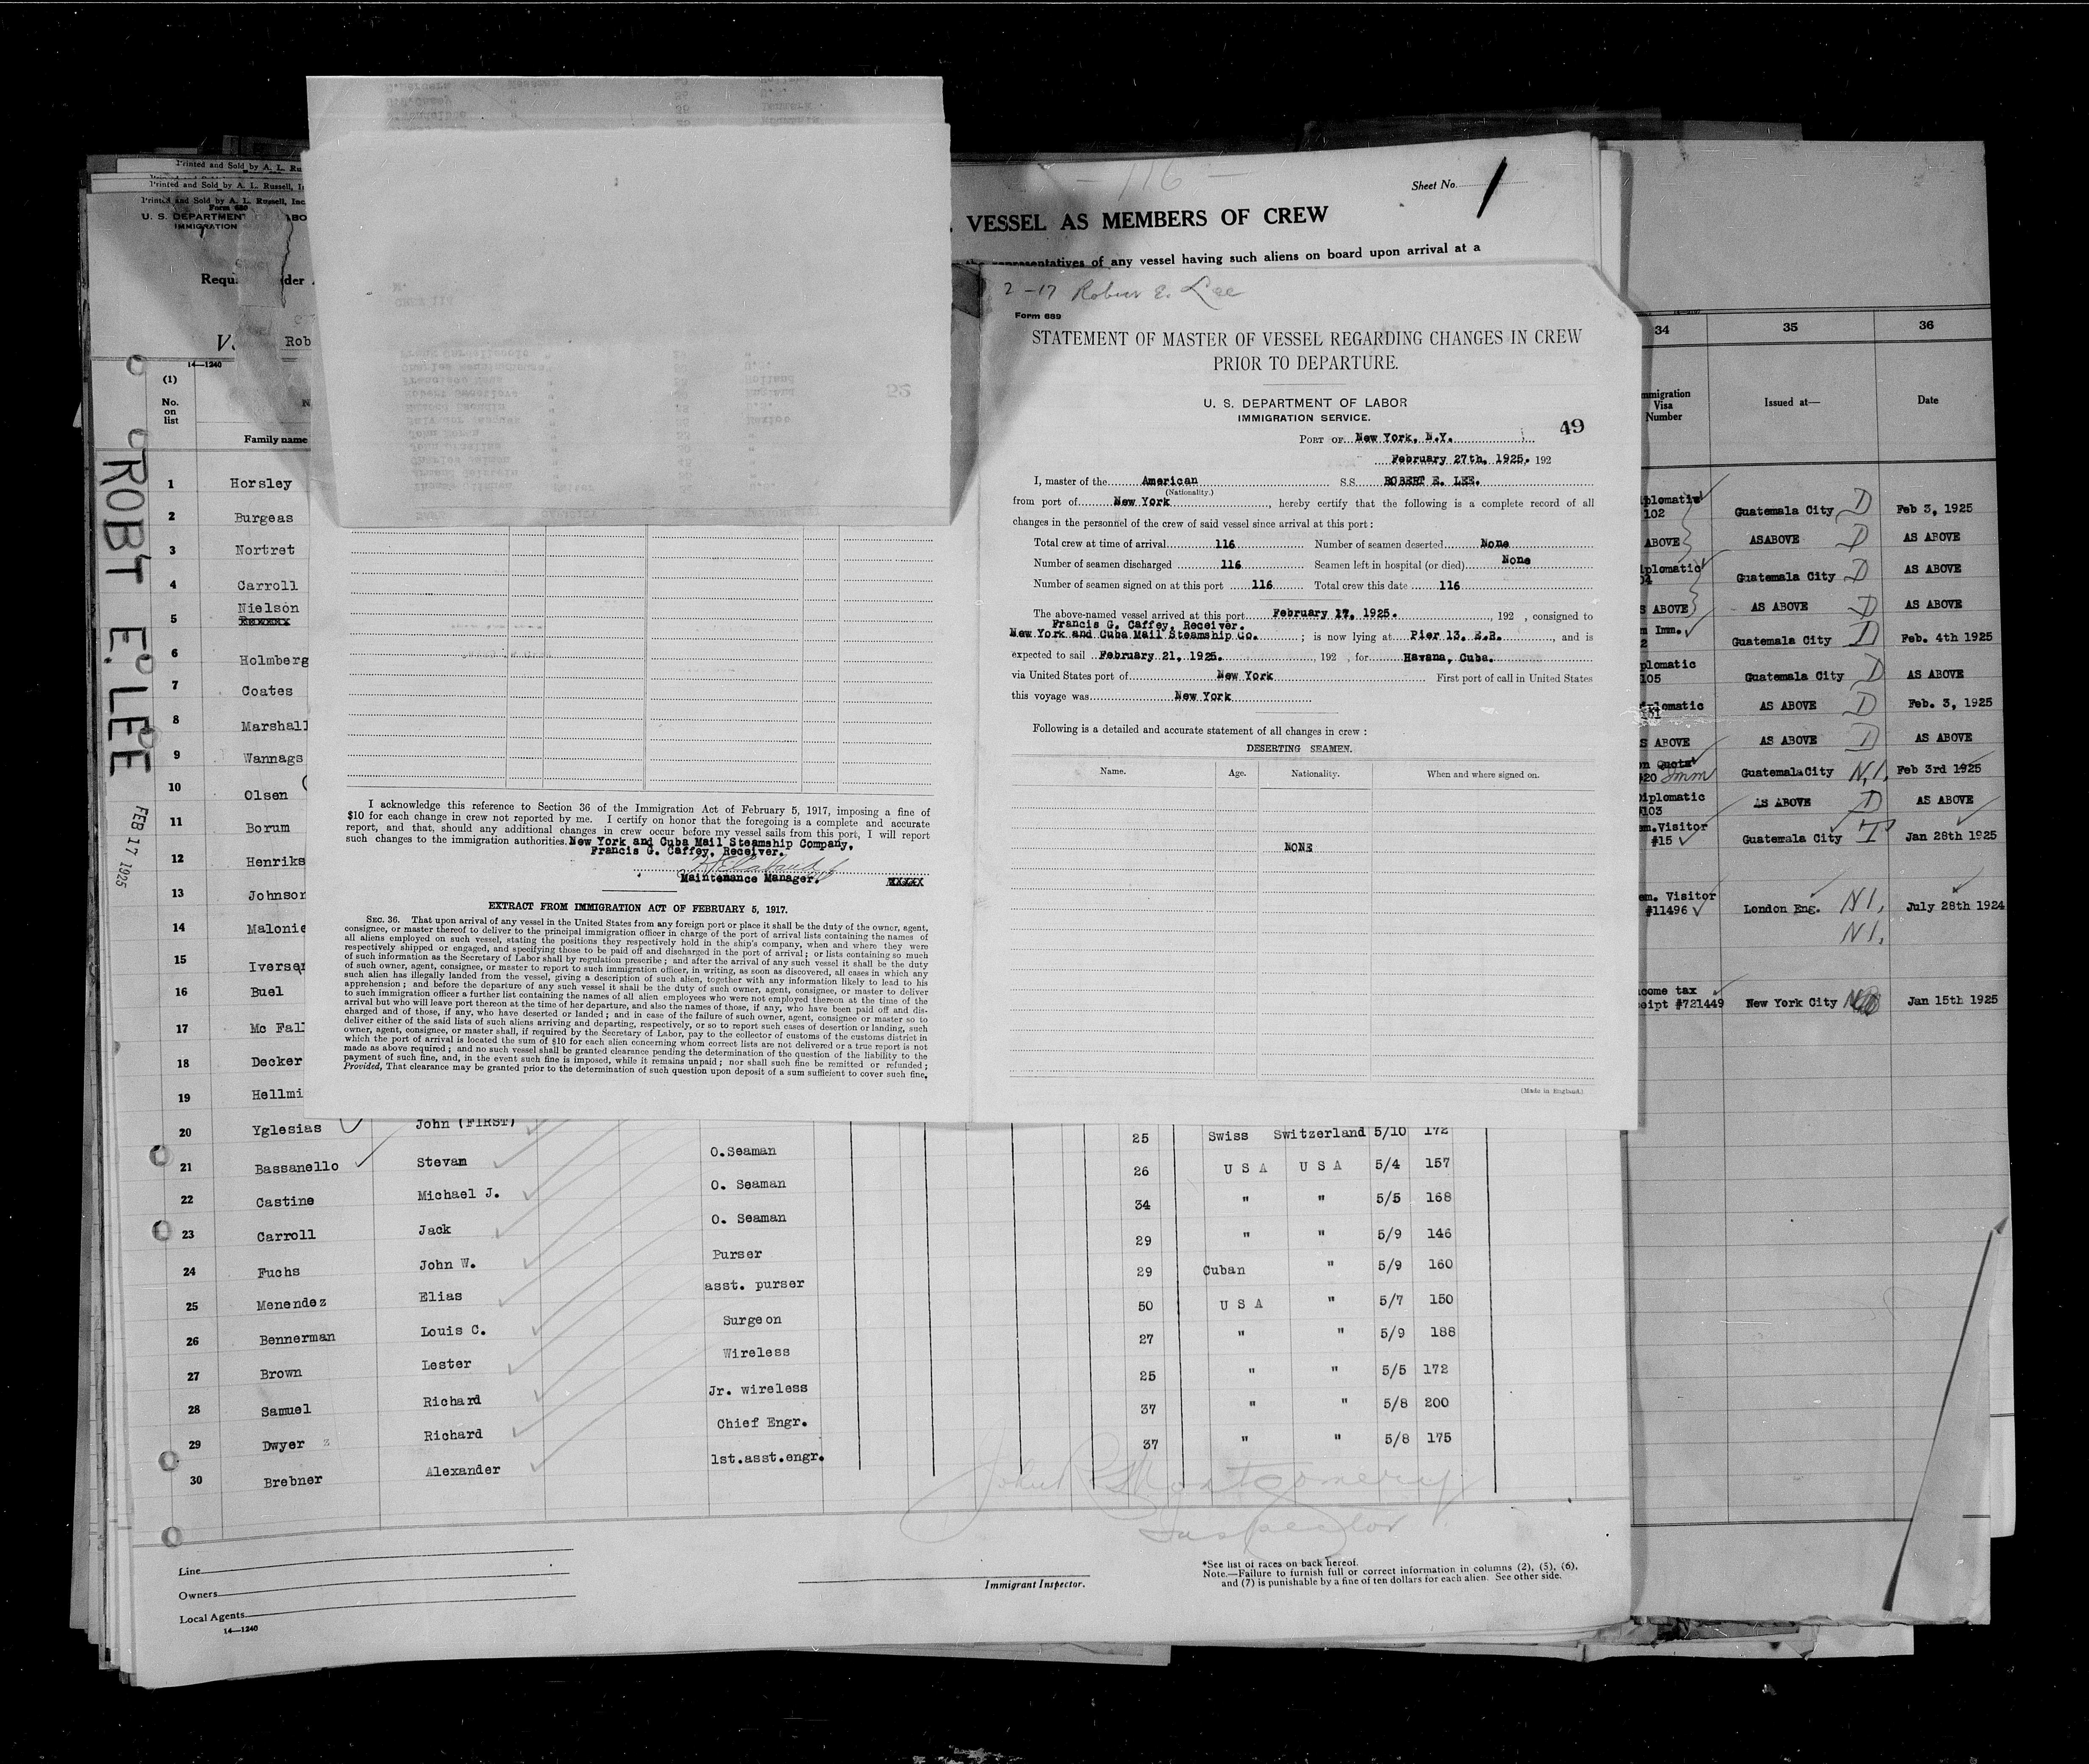 Printed and Sold by A. L. Ru
Printed and Sold by A. L. Russell, I
Printed and Sold by A. L. Russell, Inc
Form 680
U. S. DEPARTMENT
ABO
IMMIGRATION
Requi
der
V.
Rob
14—1240
(1)
No.
on
list
Family name
ROBT E. LEE
FEB 17 1925
1 Horsley
2 Burgeas
3 Nortret
4 Carroll
Nielson
5
6 Holmberg
7 Coates
8 Marshall
9 Wannags
10 Olsen
11 Borum
12 Henriks
13 Johnson
14 Malonie
15 Iversen
16 Buel
17 Mc Fal
18 Decker
19 Hellmi
20 Yglesias John (FIRST) 25 Swiss Switzerland 5/10 172
21 Bassanello Stevan O.Seaman 26 U S A U S A 5/4 157
22 Castine Michael J. O. Seaman 34 " " 5/5 168
23 Carroll Jack O. Seaman 29 " " 5/9 146
24 Fuchs John W. Purser 29 Cuban " 5/9 160
25 Menendez Elias asst. purser 50 U S A " 5/7 150
26 Bennerman Louis C. Surgeon 27 " " 5/9 188
27 Brown Lester Wireless 25 " " 5/5 172
28 Samuel Richard Jr. wireless 37 " " 5/8 200
29 Dwyer Richard Chief Engr. 37 " " 5/8 175
30 Brebner Alexander 1st.asst.engr.
John R Montgomery
Inspector
Line
Owners
Local Agents
14—1240
Immigrant Inspector.
*See list of races on back hereof.
Note.—Failure to furnish full or correct information in columns (2), (5), (6),
and (7) is punishable by a fine of ten dollars for each alien. See other side.
I acknowledge this reference to Section 36 of the Immigration Act of February 5, 1917, imposing a fine of
$10 for each change in crew not reported by me. I certify on honor that the foregoing is a complete and accurate
report, and that, should any additional changes in crew occur before my vessel sails from this port, I will report
such changes to the immigration authorities. New York and Cuba Mail Steamship Company,
Francis G. Caffey, Receiver.
Maintenance Manager. XXXXX
EXTRACT FROM IMMIGRATION ACT OF FEBRUARY 5, 1917.
SEC. 36. That upon arrival of any vessel in the United States from any foreign port or place it shall be the duty of the owner, agent,
consignee, or master thereof to deliver to the principal immigration officer in charge of the port of arrival lists containing the names of
all aliens employed on such vessel, stating the positions they respectively hold in the ship's company, when and where they were
respectively shipped or engaged, and specifying those to be paid off and discharged in the port of arrival; or lists containing so much
of such information as the Secretary of Labor shall by regulation prescribe; and after the arrival of any such vessel it shall be the duty
of such owner, agent, consignee, or master to report to such immigration officer, in writing, as soon as discovered, all cases in which any
such alien has illegally landed from the vessel, giving a description of such alien, together with any information likely to lead to his
apprehension; and before the departure of any such vessel it shall be the duty of such owner, agent, consignee, or master to deliver
to such immigration officer a further list containing the names of all alien employees who were not employed thereon at the time of the
arrival but who will leave port thereon at the time of her departure, and also the names of those, if any, who have been paid off and dis-
charged and of those, if any, who have deserted or landed; and in case of the failure of such owner, agent, consignee or master so to
deliver either of the said lists of such aliens arriving and departing, respectively, or so to report such cases of desertion or landing, such
owner, agent, consignee, or master shall, if required by the Secretary of Labor, pay to the collector of customs of the customs district in
which the port of arrival is located the sum of $10 for each alien concerning whom correct lists are not delivered or a true report is not
made as above required; and no such vessel shall be granted clearance pending the determination of the question of the liability to the
payment of such fine, and, in the event such fine is imposed, while it remains unpaid; nor shall such fine be remitted or refunded;
Provided, That clearance may be granted prior to the determination of such question upon deposit of a sum sufficient to cover such fine,
- 116 -
Sheet No. 1
VESSEL AS MEMBERS OF CREW
representatives of any vessel having such aliens on board upon arrival at a
2-17 Robert E. Lee
Form 689
STATEMENT OF MASTER OF VESSEL REGARDING CHANGES IN CREW
PRIOR TO DEPARTURE.
U. S. DEPARTMENT OF LABOR
IMMIGRATION SERVICE.
49
PORT OF New York, N.Y.
February 27th, 1925. 192
I, master of the American S.S. ROBERT E. LEE.
(Nationality.)
from port of New York, hereby certify that the following is a complete record of all
changes in the personnel of the crew of said vessel since arrival at this port:
Total crew at time of arrival 116 Number of seamen deserted None
Number of seamen discharged 116 Seamen left in hospital (or died) None
Number of seamen signed on at this port 116 Total crew this date 116
The above-named vessel arrived at this port February 17, 1925. , 192 , consigned to
Francis G. Caffey, Receiver.
New York and Cuba Mail Steamship Co. ; is now lying at Pier 13. E.R. , and is
expected to sail February 21, 1925. , 192 , for Havana, Cuba.
via United States port of New York First port of call in United States
this voyage was New York
Following is a detailed and accurate statement of all changes in crew:
DESERTING SEAMEN.
Name. Age. Nationality. When and where signed on.
NONE
(Made in England.)
34 35 36
mmigration
Visa
Number
Issued at—
Date
plomatic
102 Guatemala City D Feb 3, 1925
ABOVE ASABOVE D AS ABOVE
plomatic
04 Guatemala City D AS ABOVE
S ABOVE AS ABOVE D AS ABOVE
n Imm.
2 Guatemala City D Feb. 4th 1925
plomatic
105 Guatemala City D AS ABOVE
plomatic
101 AS ABOVE D Feb. 3, 1925
S ABOVE AS ABOVE D AS ABOVE
n Quota
#20 Imm GuatemalaCity N.I. Feb 3rd 1925
Diplomatic
#103 AS ABOVE D AS ABOVE
em.Visitor
#15 Guatemala City T Jan 28th 1925
em. Visitor
#11496 London Eng. N I, July 28th 1924
N I,
come tax
eipt #721449 New York City Jan 15th 1925